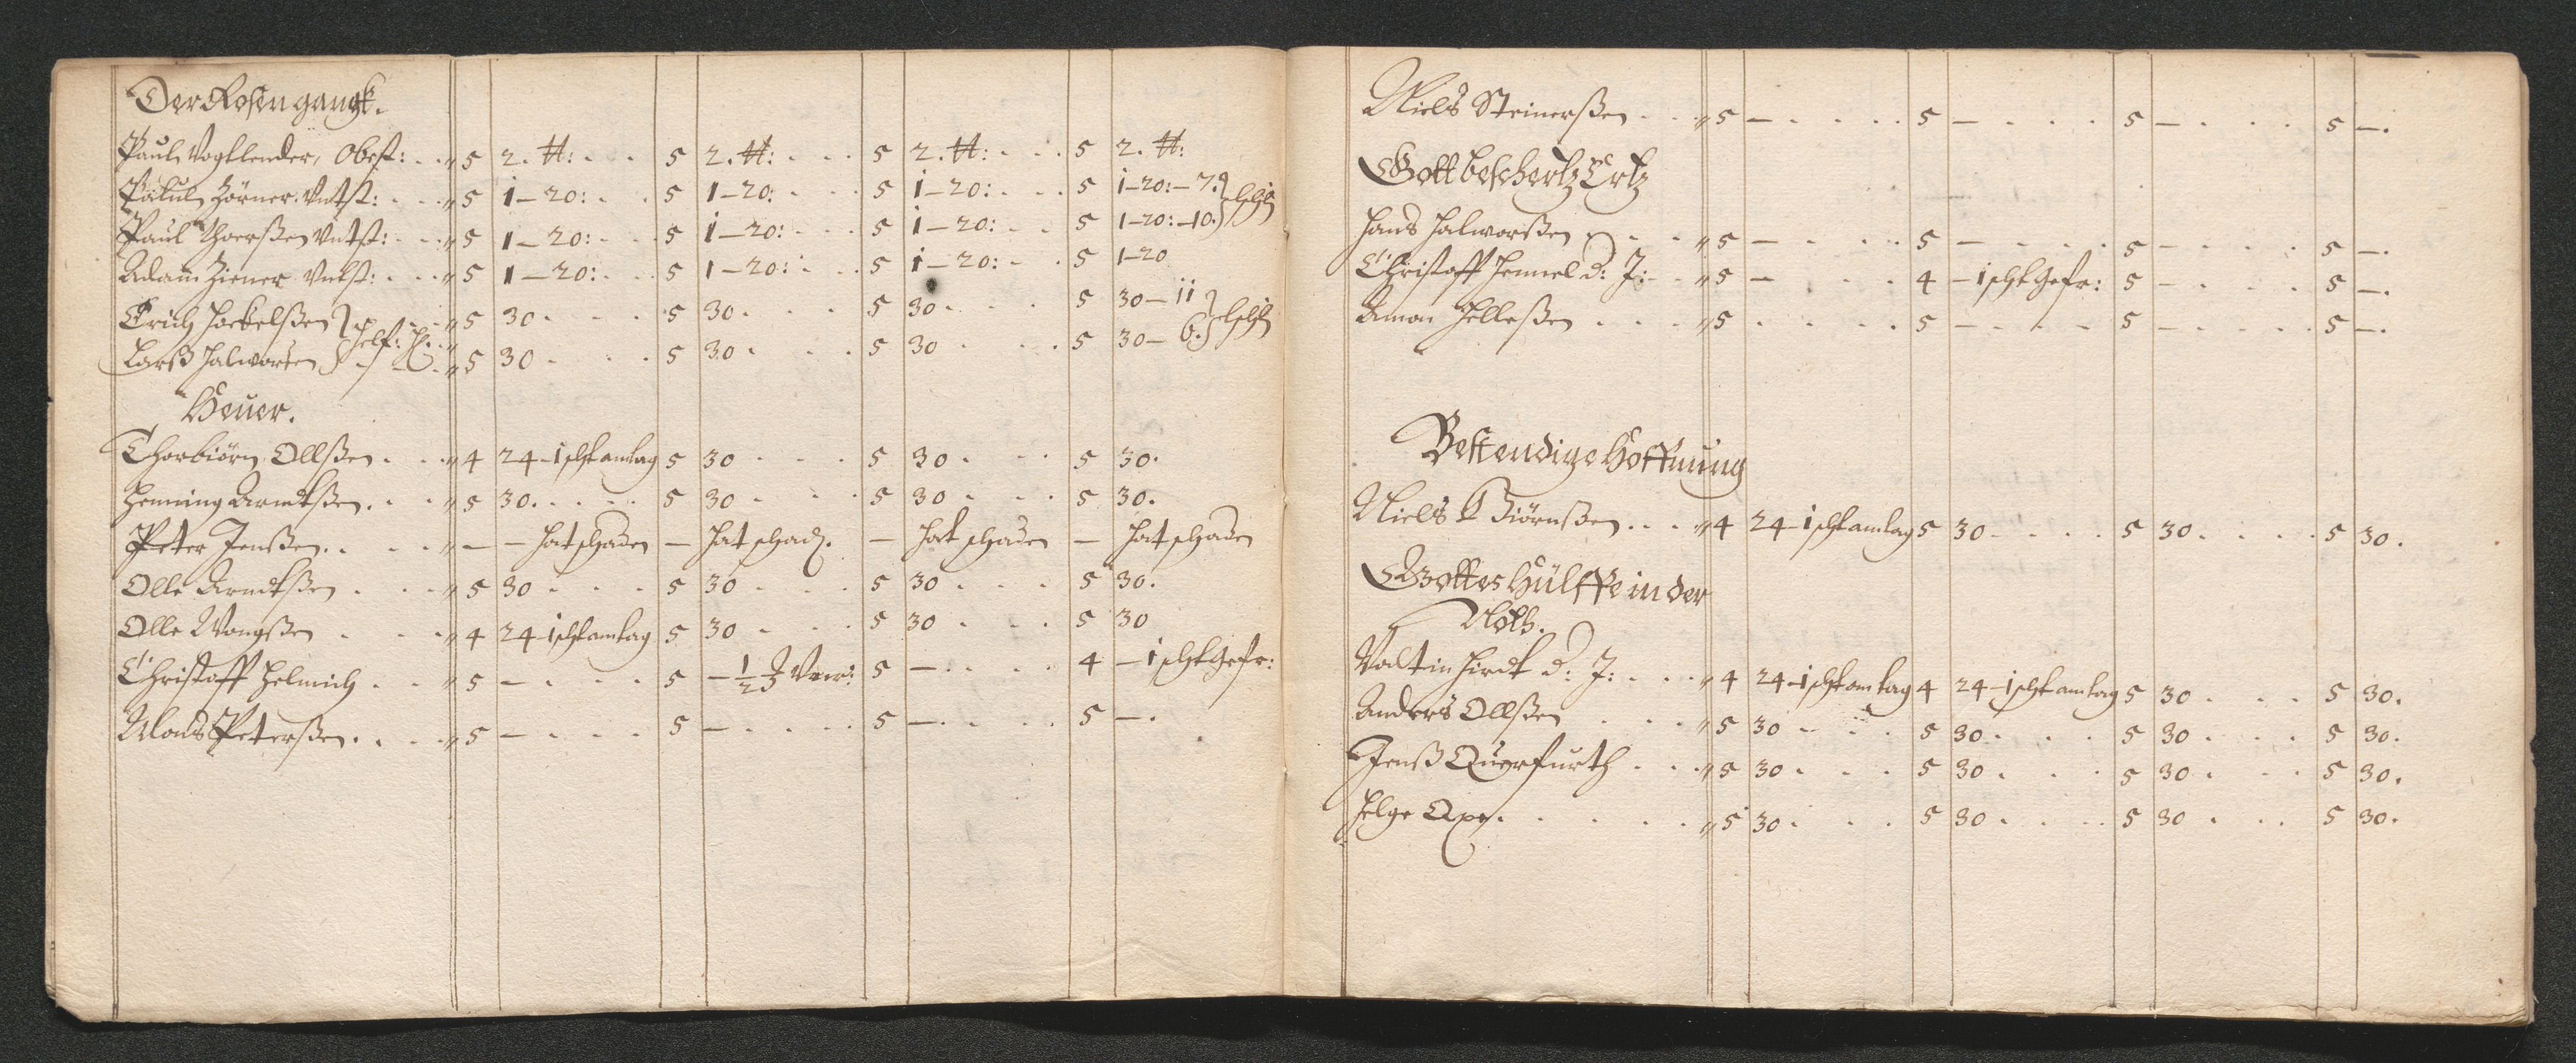 Der Rosengangk.
Paul Vogtlender, Obest: . . " 5 2. tt: . . . 5 2. tt: . . . 5 2. tt: . . . 5 2. tt:
Paul Hörner Untst: . . . " 5 1–20: . . . 5 1–20: . . . 5 1–20: . . . 5 1–20: – 7.
Paul Thorßen Untst: . . . " 5 1–20: . . . 5 1–20: . . . 5 1–20: . . . 5 1–20: – 10.
Adam Ziener Untst: . . . " 5 1–20: . . . 5 1–20: . . . 5 1–20: . . . 5 1–20
Erich " 5 30 . . . 5 30 . . . 5 30 . . . 5 30 – 11
Larß Halworsen " 5 30 . . . 5 30 . . . 5 30 . . . 5 30 – 6.
Heuer.
Thorbiörn Ollßen . . . " 4 24 – 1 scht amtag 5 30 . . . 5 30 . . . 5 30.
Henning Arndtßen . . . " 5 30 . . . 5 30 . . . 5 30 . . . 5 30.
Peter Jenßen . . . " – – hat schaden – hat schad. – hat schaden – hat schaden
Olle Arndtßen . . . " 5 30 . . . 5 30 . . . 5 30 . . . 5 30.
Olle Wongßen . . . " 4 24 – 1 schtamtag 5 30 . . . 5 30 . . . 5 30
Christoff Helmich . . . " 5 – . . . 5 – 1/2 5 – . . . 4 – 1 scht gefr:
Mons Peterßen . . . " 5 – . . . 5 – . . . 5 – . . . 5 –.
Niels Steinerßen . . . " 5 – . . . 5 – . . . 5 – . . . 5 –.
Gott beschertz Ertz
Hans Halworßen . . . " 5 – . . . 5 – . . . 5 – . . . 5 –.
Christoff Hennel d: J: . . " 5 – . . . 4 – 1 scht gefr: 5 – . . . 5 –.
Amon Helleßen . . . " 5 . . . 5 – . . . 5 – . . . 5 –.
Bestendige Hoffnung
Niels Biörnßen . . . " 4 24 – 1 scht amtag 5 30 . . . 5 30 . . . 5 30.
Gottes Hülffe in der
Noth.
Valtin Hirdt d: J: . . . " 4 24 – 1 scht amtag 4 24 – 1 scht amtag 5 30 . . . 5 30.
Anders Ollßen . . . " 5 30 . . . 5 30 . . . 5 30 . . . 5 30.
Jenß Querfurth . . . " 5 30 . . . 5 30 . . . 5 30 . . . 5 30.
Helge Oxe . . . " 5 30 . . . 5 30 . . . 5 30 . . . 5 30.